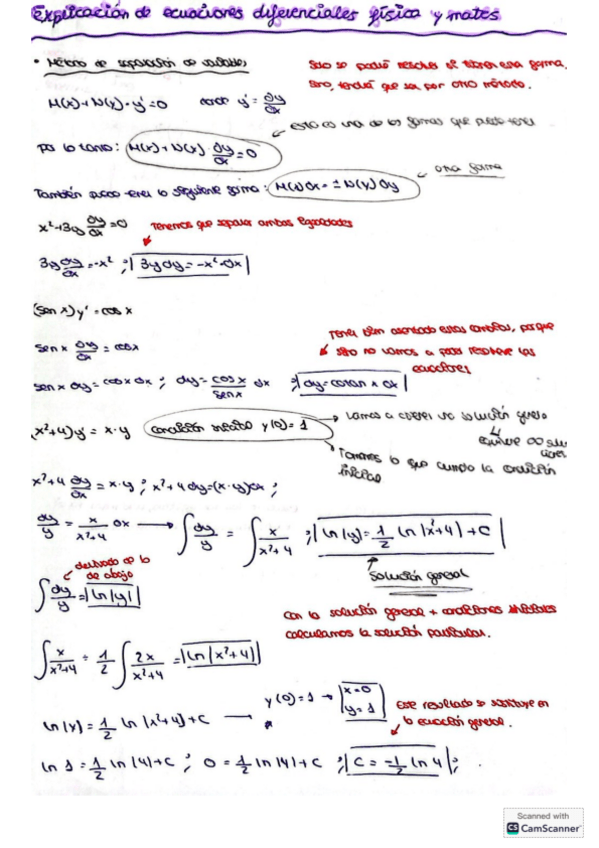 Explicación de ecuaciones diferenciales física y mates
• Método de separación de variables
Solo se podrá resolver si tienen esta forma,
Sino, tendrá que ser por otro método.
M(x)+N(y)·y'=0 donde y'=dy/dx
esta es una de las formas que puede tener
Por lo tanto: M(x)+N(y)·dy/dx=0
otra forma
También puede tener la siguiente forma: M(x)dx=±N(y)dy
x²+3y dy/dx=0 Tenemos que separar ambas igualdades
3y dy/dx=-x² ; 3y dy=-x²·dx
(sen x)y'=cos x
sen x dy/dx = cos x
Tener bien asentado estos cambios, porque
sino no vamos a poder resolver las
ecuaciones
sen x dy=cos x dx ; dy=cos x/sen x dx ; dy=cotan x dx
(x²+4)y'=x·y condición inicial y(0)=1 → Vamos a obtener una solución general
equivale ∞ soluciones
Tomamos la que cumpla la condición
inicial
x²+4 dy/dx=x·y ; x²+4 dy=(x·y)dx ;
dy/y = x/x²+4 dx → ∫dy/y = ∫x/x²+4 ; ln|y|=1/2 ln|x²+4|+C
derivada de lo
de abajo
Solución general
∫dy/y=ln|y|
Con la solución general + condiciones iniciales
calculamos la solución particular.
∫x/x²+4 = 1/2 ∫2x/x²+4 = ln|x²+4|
y(0)=1 → x=0
y=1
Este resultado se sustituye en
la ecuación general.
ln|y|=1/2 ln|x²+4|+C →
ln 1=1/2 ln|4|+C ; 0=1/2 ln|4|+C ; C=-1/2 ln 4 ;
Scanned with
CS CamScanner